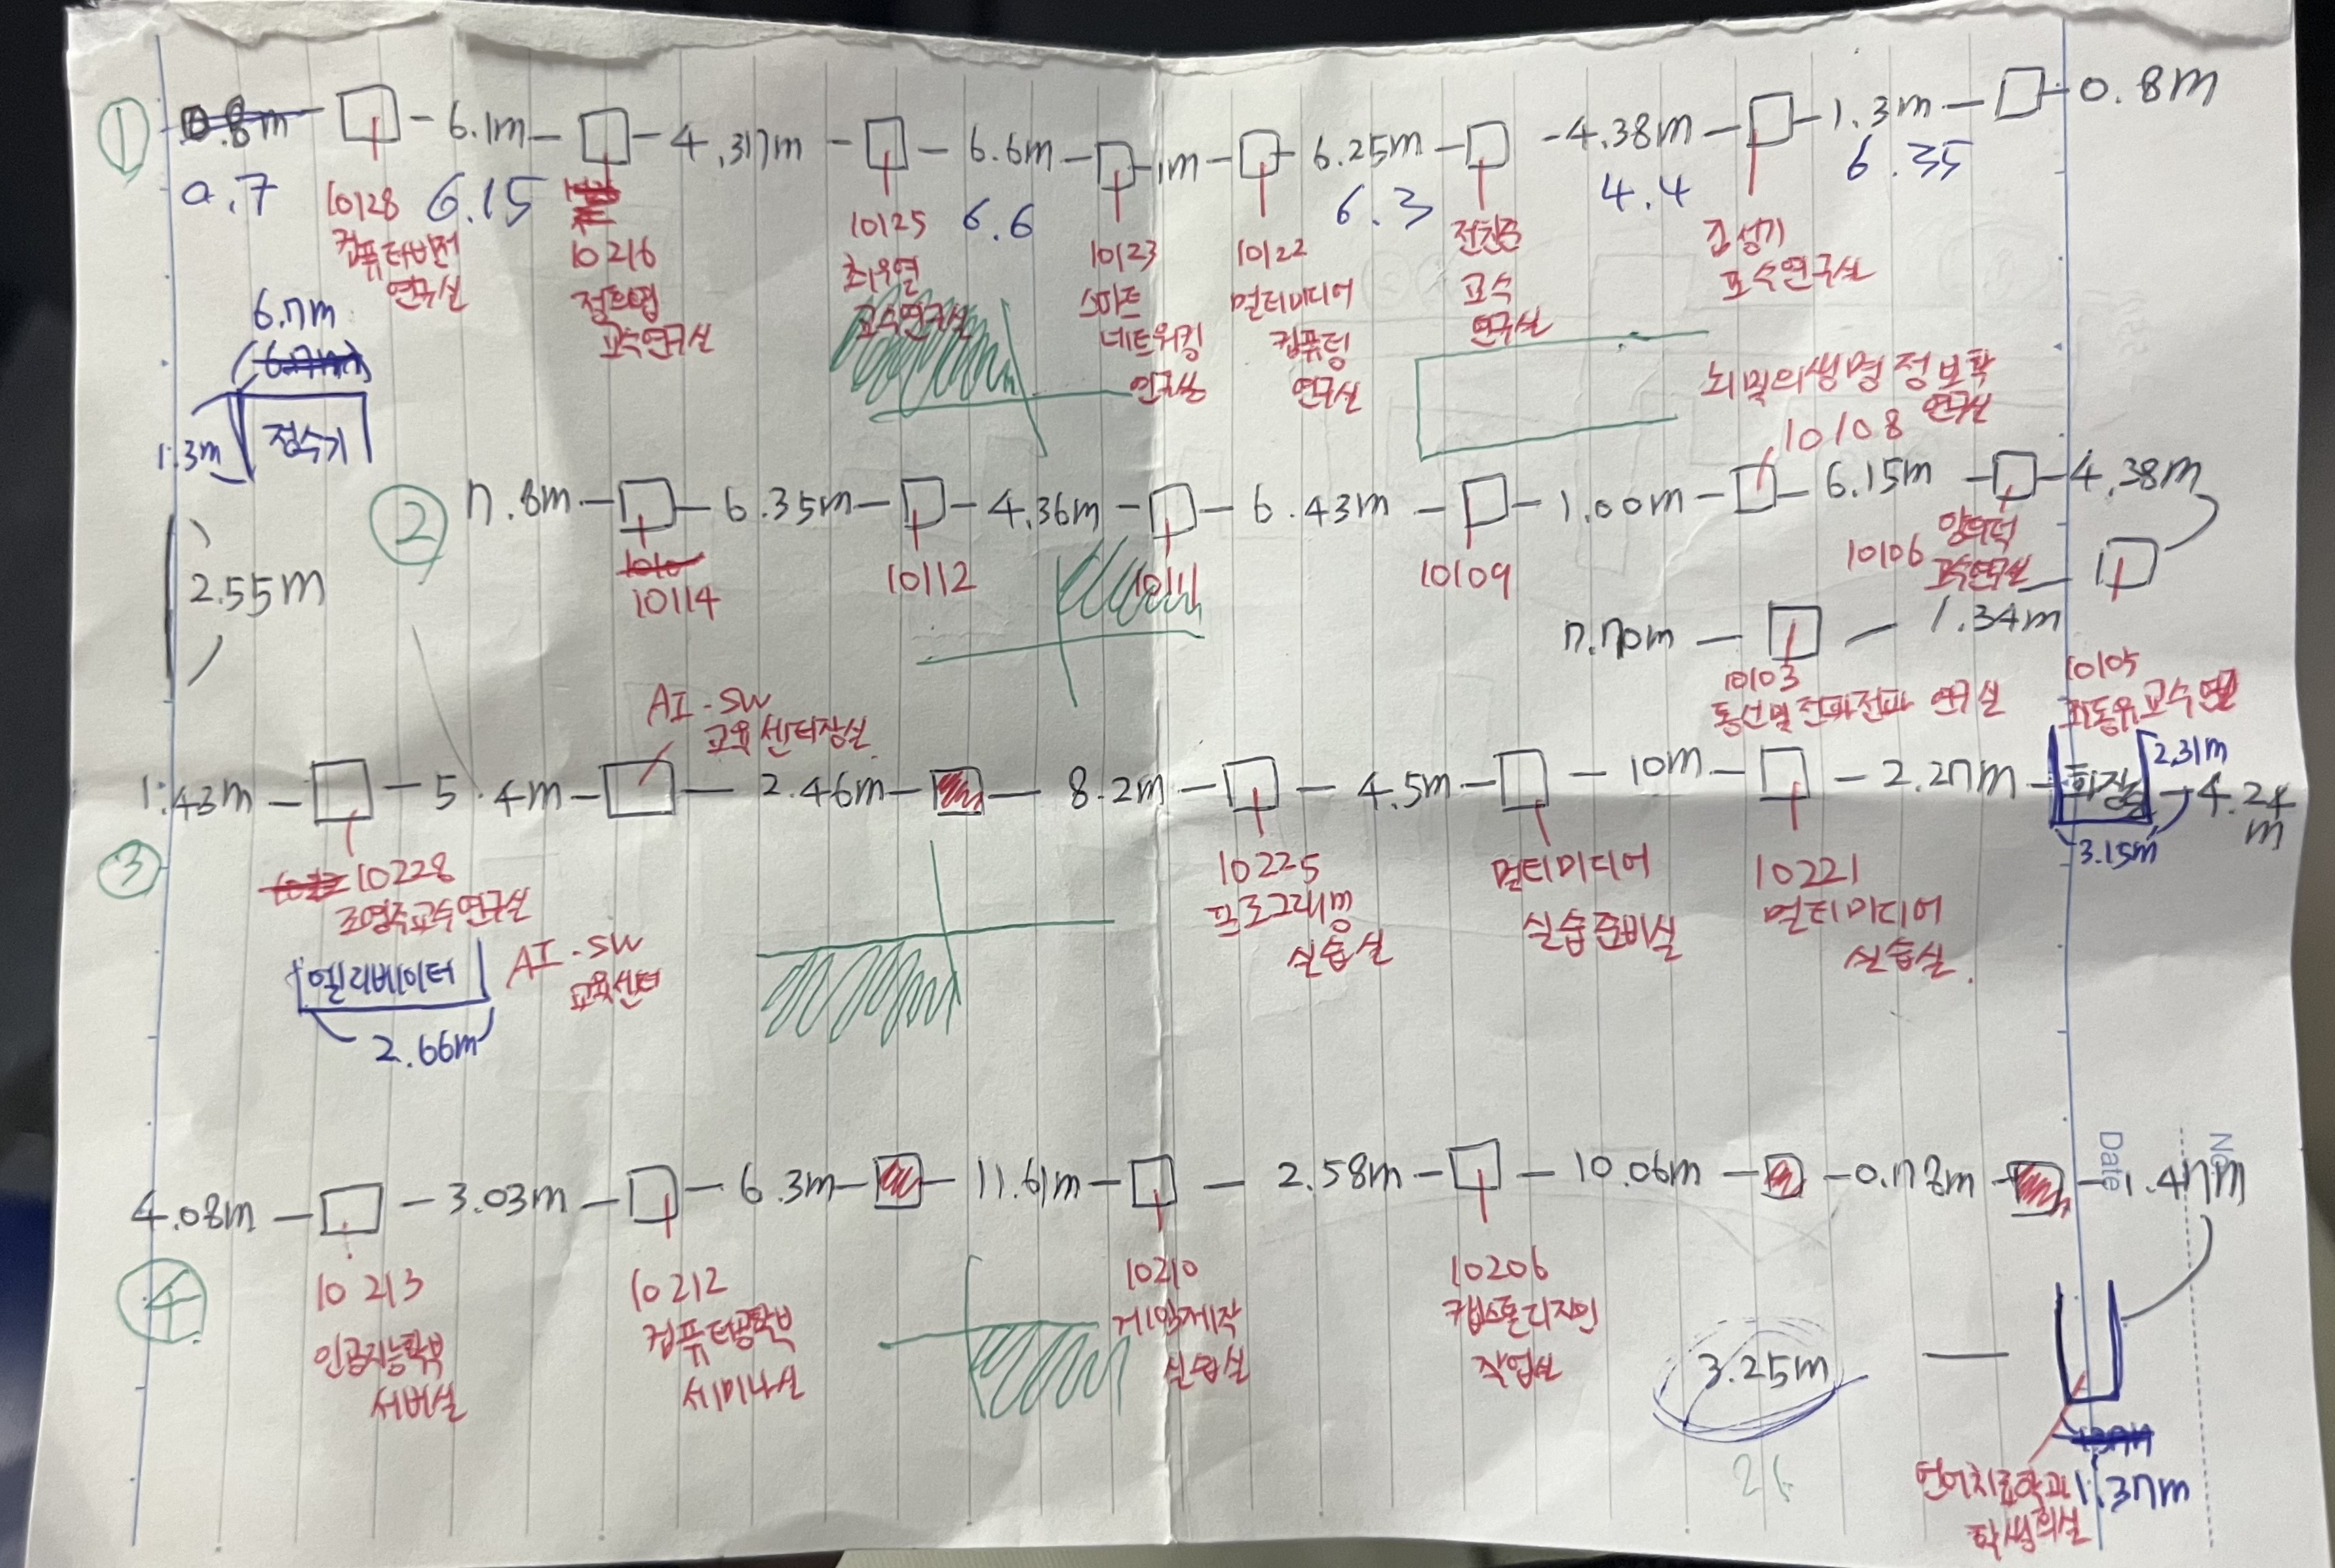 ① 0.8m □ - 6.1m - □ - 4.37m - □ - 6.6m - □ - 1m - □ - 6.25m - □ - 4.38m - □ - 1.3m - □ - 0.8m
0.7 6.15 6.6 6.3 4.4 6.35
10128 컴퓨터비전 연구실
10216 교수연구실
10125 최우열 교수연구실
10123 스마트 네트워킹 연구실
10122 멀티미디어 컴퓨팅 연구실
전찬준 교수 연구실
김성기 교수연구실
6.7m
1.3m 정수기
2.55m
② 7.8m - □ - 6.35m - □ - 4.36m - □ - 6.43m - □ - 1.00m - □ - 6.15m - □ - 4.38m
뇌및의생명정보학 연구실
10108
10114
10112
10111
10109
10106 양희덕 교수연구실
7.70m - □ - 1.34m - □
10103
통신및전파전파 연구실
10105
최동유교수연구실
③ 1.43m - □ - 5.4m - □ - 2.46m - □ - 8.2m - □ - 4.5m - □ - 10m - □ - 2.27m - 화장실 - 4.24m
2.31m
3.15m
AI-SW
교육센터장실
10228
조영주교수연구실
AI-SW
교육센터
10225
프로그래밍
실습실
멀티미디어
실습준비실
10221
멀티미디어
실습실.
엘리베이터
2.66m
④ 4.08m - □ - 3.03m - □ - 6.3m - □ - 11.61m - □ - 2.58m - □ - 10.06m - □ - 0.78m - □ - 1.47m
10213
인공지능학부
서버실
10212
컴퓨터공학부
세미나실
10210
게임제작
실습실
10206
캡스톤디자인
작업실
3.25m
26
언어치료학과
학생회실
1.37m
Date
No